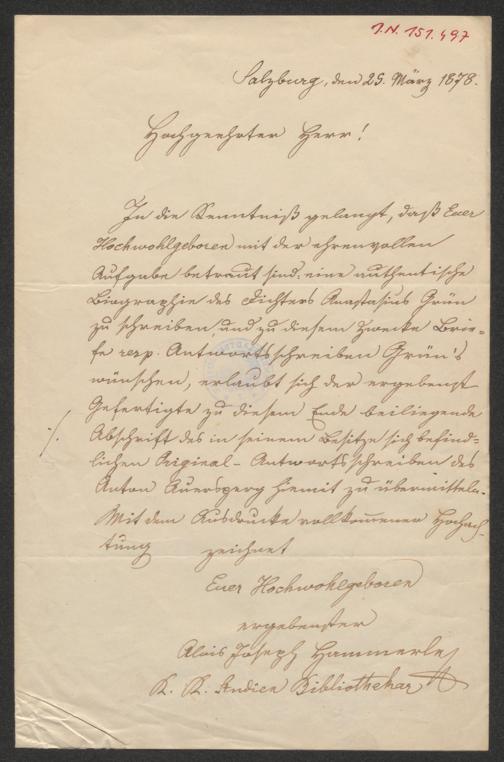 I.N. 151.497
Salzburg, den 25. März 1878.
Hochgeehrter Herr!
In die Kenntniß gelangt, daß Euer
Hochwohlgeboren mit der ehrenvollen
Aufgabe betraut sind, eine authentische
Biographie des Dichters Anastasius Grün
zu schreiben, und zu diesem Zwecke Brie-
fe resp. Antwortsschreiben Grün's
wünschen, erlaubt sich der ergebenst
Gefertigte zu diesem Ende beiliegende
./. Abschrift des in seinem Besitze sich befind-
lichen Original-Antwortsschreiben des
Anton Auersperg hiemit zu übermitteln.
Mit dem Ausdrucke vollkommener Hochach-
tung zeichnet
Euer Hochwohlgeboren
ergebenster
Alois Joseph Hammerle
K. K. Studien Bibliothekar